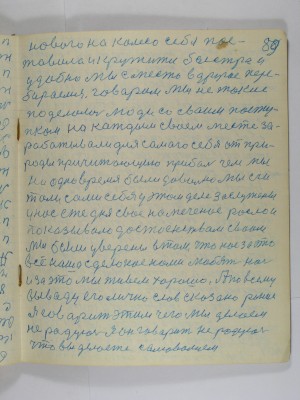 нового на колесо себя пос-
тавила и кружити быстра и
удобно мы с место в другое пере-
бираемся, говорим мы не такие
по делом люди со своим посту-
пком на каждым своем месте за-
рабатывали для самого себя от при-
роды причитающию прибыл чем мы
на одно время были довольно мы счи-
таем сами себя у этом деле заслужены
у нас ежедня свое намечение росло и
показывало достоенствам своем
мы были уверены в том, что нас за это
всё наше сделаное нами любят нас
и за это мы живем хорошо, А по всему
выводу его лично слов сказано раньше
Я говорит этим чего мы делаем
не радуюс Я он говорит не радуюс
что вы делаете самоволием
89